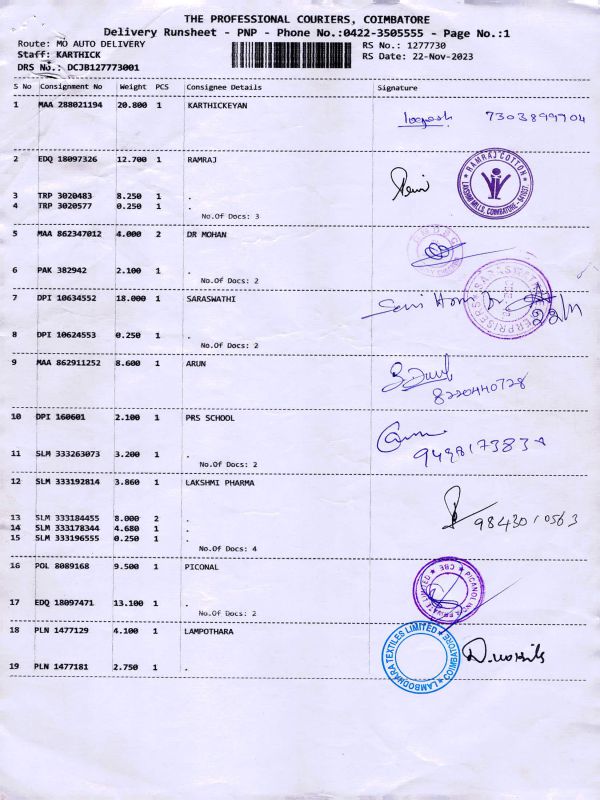 THE PROFESSIONAL COURIERS, COIMBATORE
Delivery Runsheet - PNP - Phone No.:0422-3505555 - Page No.:1
Route: MO AUTO DELIVERY
RS No.: 1277730
Staff: KARTHICK
RS Date: 22-Nov-2023
DRS No.: DCJB127773001
S No Consignment No Weight PCS Consignee Details Signature
1 MAA 288021194 20.800 1 KARTHICKEYAN
7303899704
2 EDQ 18097326 12.700 1 RAMRAJ
RAMRAJ COTTON
LAKSHMI MILLS, COIMBATORE
3 TRP 3020483 8.250 1 .
4 TRP 3020577 0.250 1 .
No.Of Docs: 3
5 MAA 862347012 4.000 2 DR MOHAN
6 PAK 382942 2.100 1 .
No.Of Docs: 2
7 DPI 10634552 18.000 1 SARASWATHI
SARASWATHI ENTERPRISERS
8 DPI 10624553 0.250 1 .
No.Of Docs: 2
9 MAA 862911252 8.600 1 ARUN
8220440728
10 DPI 160601 2.100 1 PRS SCHOOL
11 SLM 333263073 3.200 1 .
No.Of Docs: 2
12 SLM 333192814 3.860 1 LAKSHMI PHARMA
9843010563
13 SLM 333184455 8.000 2 .
14 SLM 333178344 4.680 1 .
15 SLM 333196555 0.250 1 .
No.Of Docs: 4
16 POL 8089168 9.500 1 PICONAL
PRIVATE LIMITED CBE
17 EDQ 18097471 13.100 1 .
No.Of Docs: 2
18 PLN 1477129 4.100 1 LAMPOTHARA
LAMBODHARA TEXTILES LIMITED
COIMBATORE
19 PLN 1477181 2.750 1 .